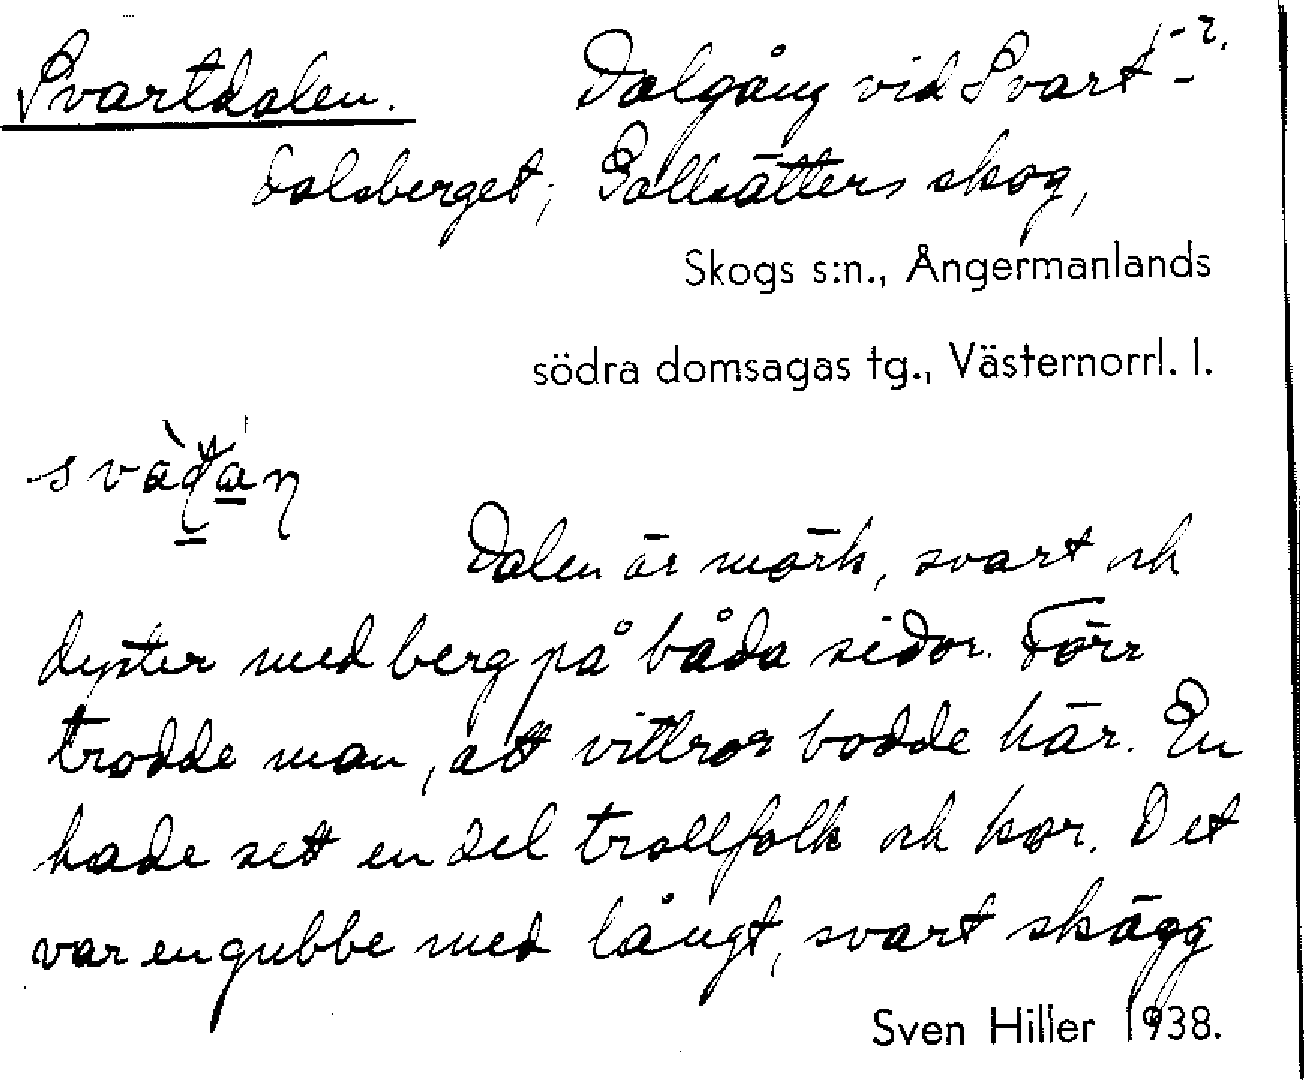 Svartdalen. Dalgång vid Svart-
1-2.
dalsberget; Gallsätters skog,
Skogs s:n., Ångermanlands
södra domsagas tg., Västernorrl. l.
Dalen är mörk, svart och
dyster med berg på båda sidor. Förr
trodde man, att vittror bodde här. En
hade sett en del trollfolk och kor. Det
var en gubbe med långt, svart skägg
Sven Hiller 1938.